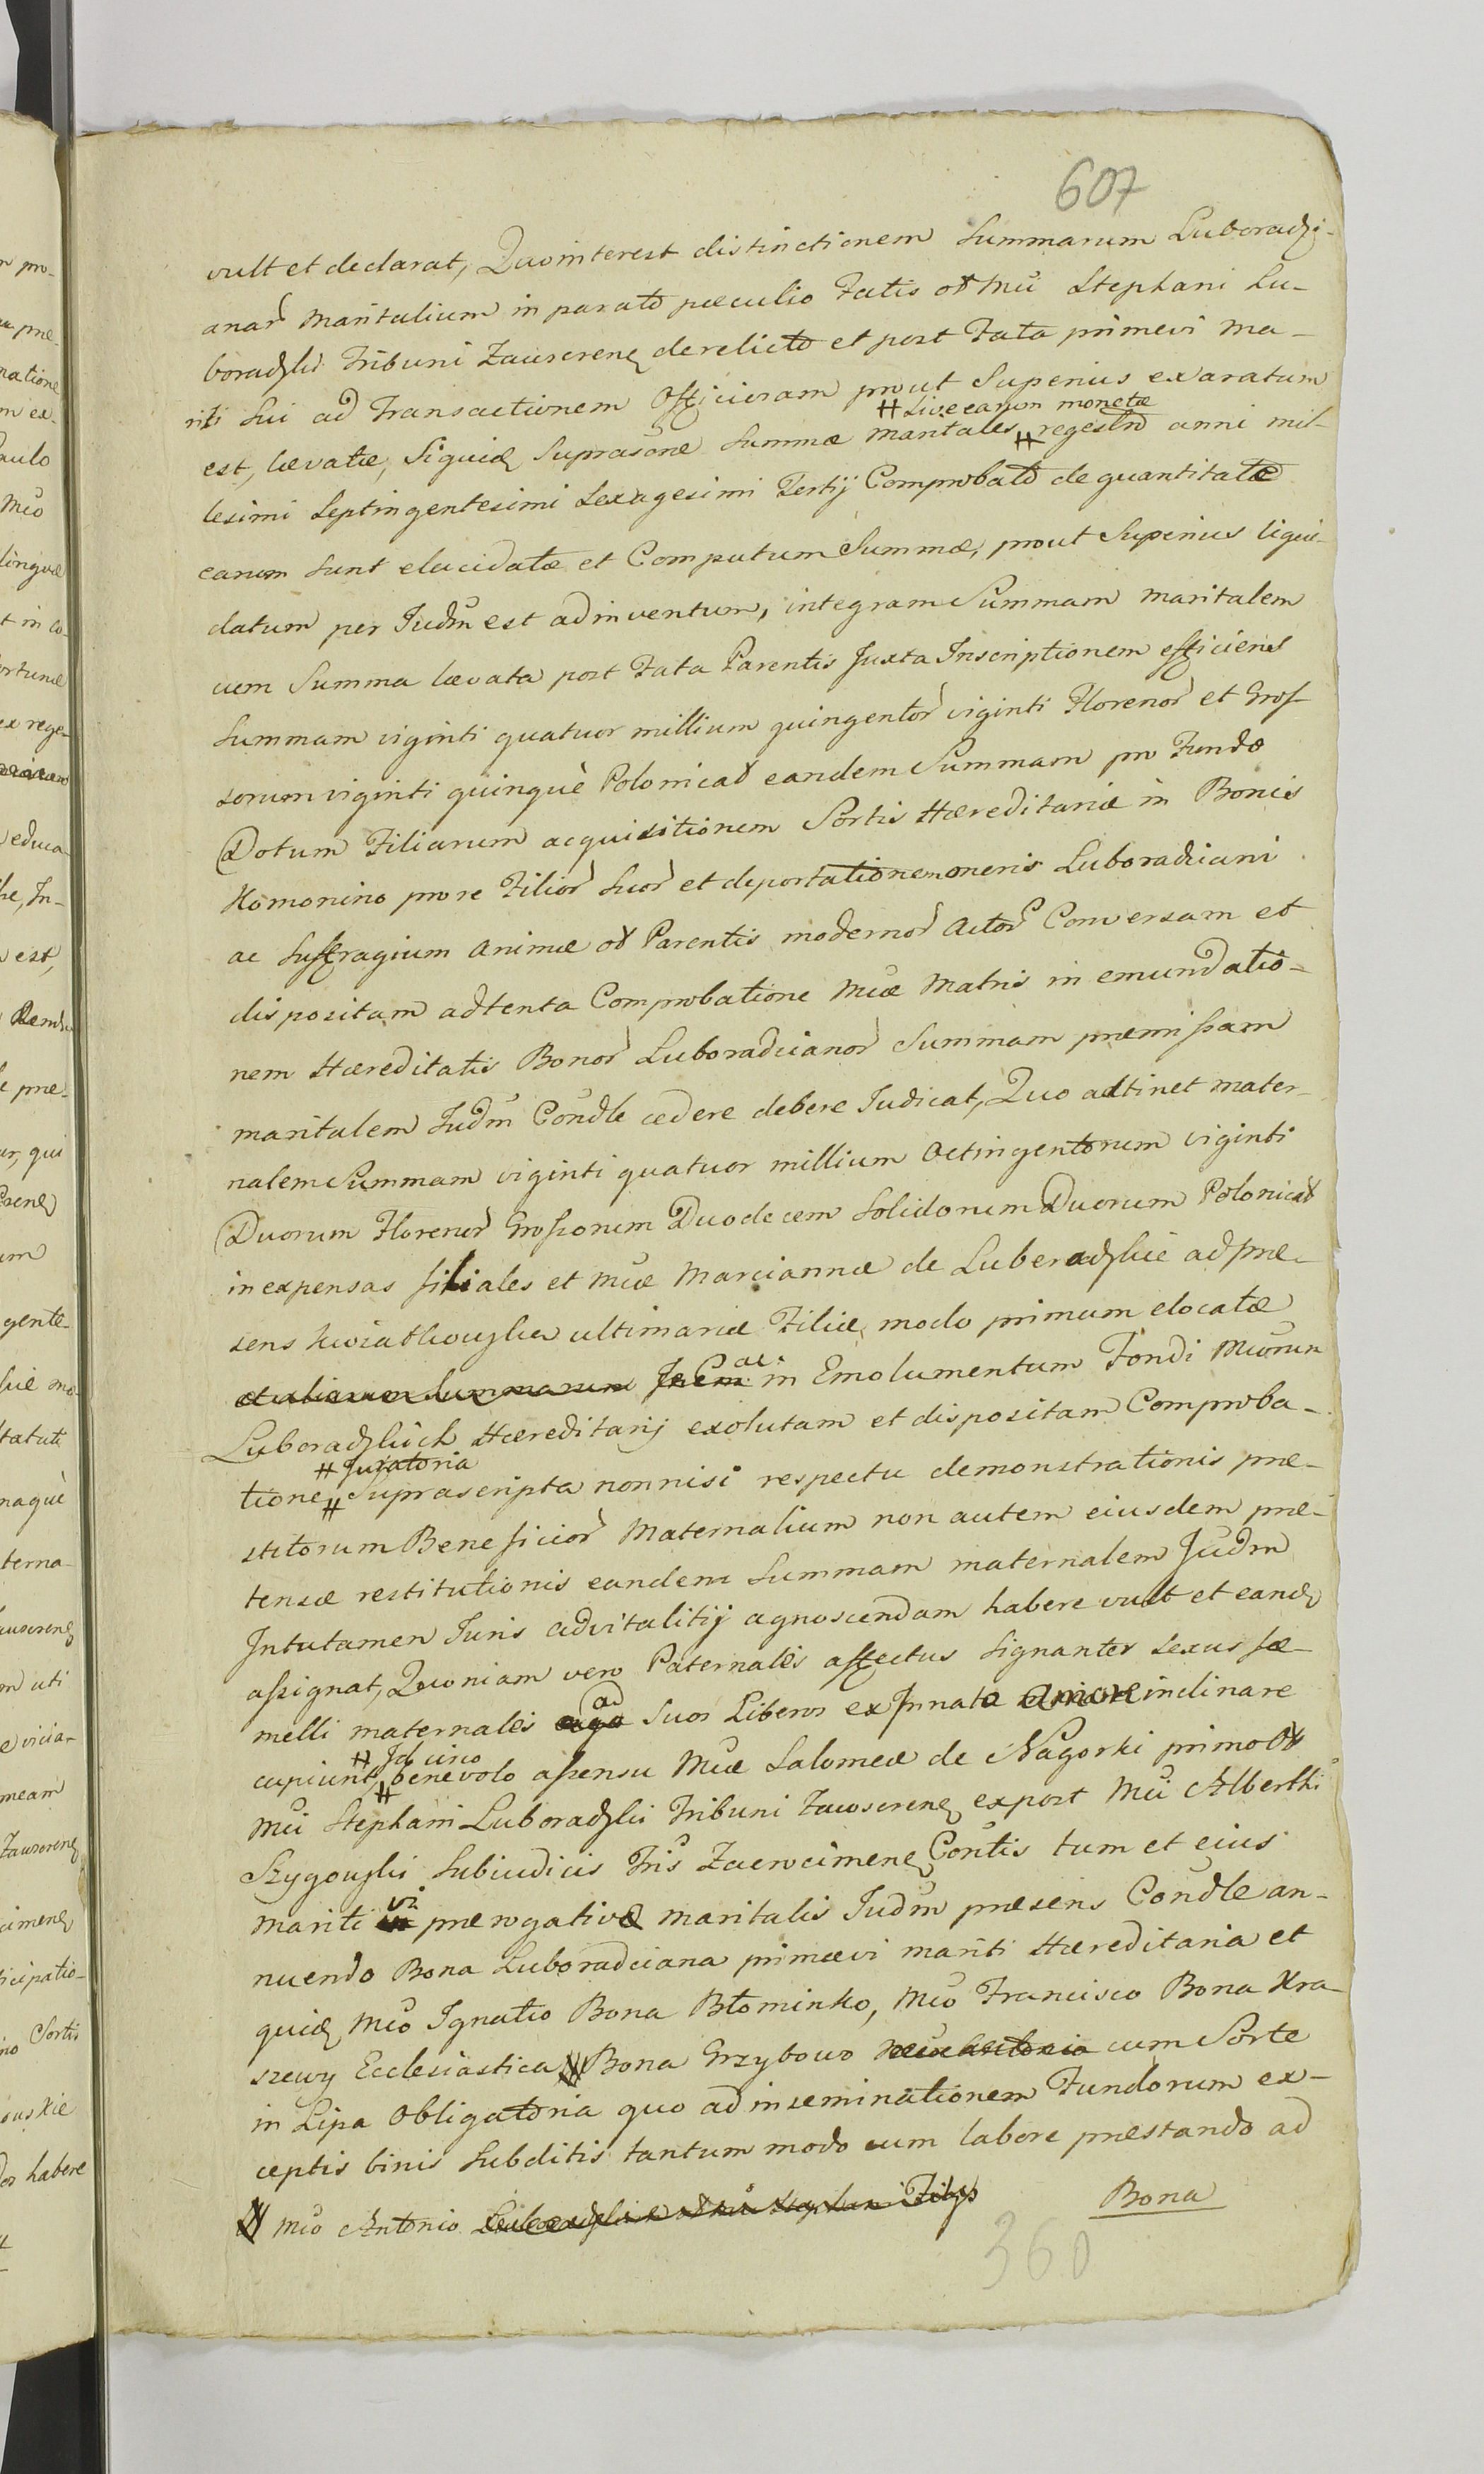 607
vult et declarat, Quo interest distinctionem Summarum Luboradzi-
anar̄ maritalium in parato pæculio Fatis oł Mci Stephani Lu-
boradzki Tribuni Zawscrenę derelicto et post Fata primevi ma-
riti sui ad Transactionem Officiosam prout Superius exaratum
# sive earum monetæ
est, lævatæ, Siquidę Suprascriæ Summæ maritales # regestro anni mil-
lesimi Septingentesimi Sexagesimi Tertij Comprobato de quantitate
earum sunt elucidatæ et Computum Summæ, prout Superius liqui-
datum per Judm est adinventum, integram Summam maritalem
cum Summa lævata post Fata Parentis Juxta Inscriptionem efficiens
Summam viginti quatuor millium quingentor̄ viginti Florenor̄ et Gros-
sorum viginti quinquè Polonical̄ eandem Summam pro Fundo
Dotum Filiarum acquisitionem Sortis Hæreditariæ in Bonis
Komonino pro re Filior̄ suor̄ et deportationem oneris Luboradziani
ac suffragium animæ oł Parentis modernor̄ Actor̄ Conversam et
dispositam adtenta Comprobatione Mcæ Matris in emundatio-
nem Hæreditatis Bonor̄ Luboradzianor̄ Summam præmissam
maritalem Judm Condle cedere debere Judicat, Quo adtinet mater-
nalem Summam viginti quatuor millium Octingentorum viginti
Duorum Florenor̄ Grossorum Duodecem Solidorum Duorum Polonical̄
in expensas filiales et Mcæ Mariannæ de Luboradzkie ad præ-
sens Kwiatkowska ultimariæ Filiæ modo primum elocatæ
et aliarum Summarum ac in Emolumentum Fondi Mcorum
Luboradzkich Hæreditarij exolutam et dispositam Comproba-
# Juratoria
tione # Suprascripta nonnisi respectu demonstrationis præ-
stitorum Beneficior̄ Maternalium non autem eiusdem præ-
tensæ restitutionis eandem Summam maternalem Judm
Intutamen Juris advitalitij agnoscendam habere vult et eandę
assignat, Quoniam vero Paternales affectus signanter sexus fæ-
melli maternales ad suos Liberos ex Innato amore inclinare
# Id circo
cupiunt # benevolo assensu Mcæ Salomeæ de Nagorki primo oł
Mci Stephani Luboradzki Tribuni Zawscrenę expost Mci Alberthi
Szygowski Subiudicis Tris Zawcimenę Contis tum et eius
mariti vi prærogativæ maritalis Judm præsens Condle an-
nuendo Bona Luboradziana primævi mariti Hæreditaria et
quidę Mco Ignatio Bona Błominko, Mco Francisco Bona Kra-
szewy Ecclesiastica Bona Grzybowo cum Sorte
in Lipa Obligatoria quo ad inseminationem Fundorum ex-
ceptis binis Subditis tantum modo cum labore præstando ad
Mco Antonio
Bona
360